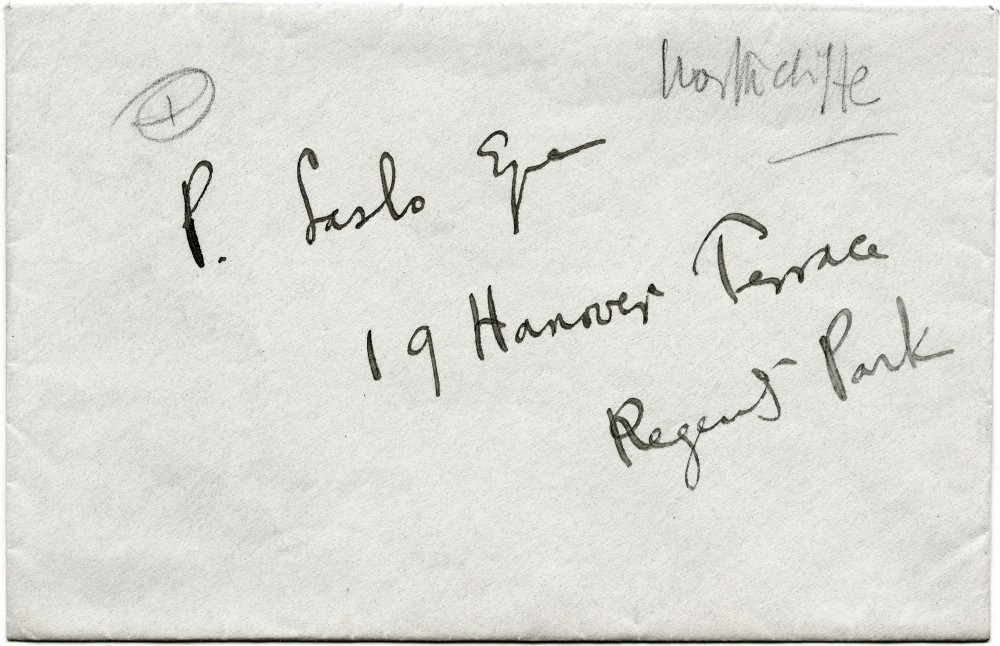 Northcliffe
1
P. Laszlo Esqre
19 Hanover Terrace
Regent's Park